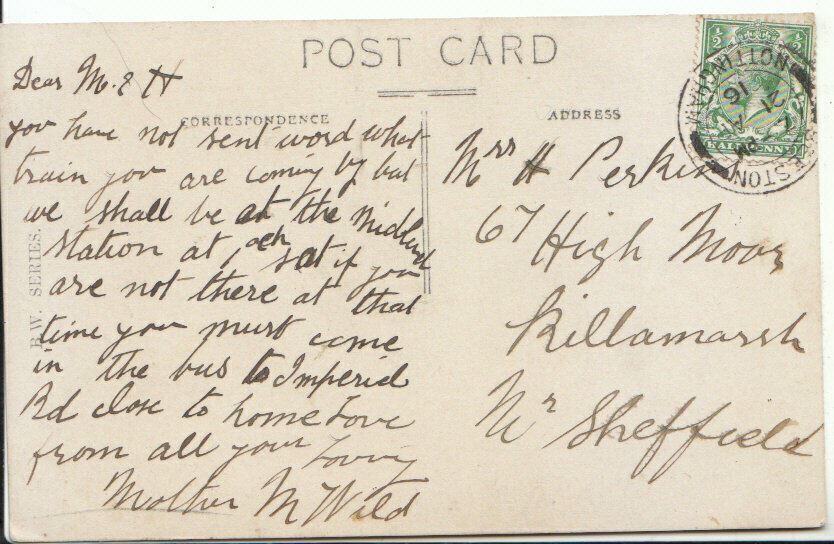 POST CARD
CORRESPONDENCE
Dear M. & H
you have not sent word what
train you are coming by but
we shall be at the Midland
station at, sat if you
are not there at that
time you must come
in the bus to Imperial
Rd close to home Love
from all your Loving
Mother M Wild
B.W. SERIES.
ADDRESS
Mrs H Perkin
67 High Moor
Killamarsh
Nr Sheffield
NOTTINGHAM
21
16
HALFPENNY
½ ½